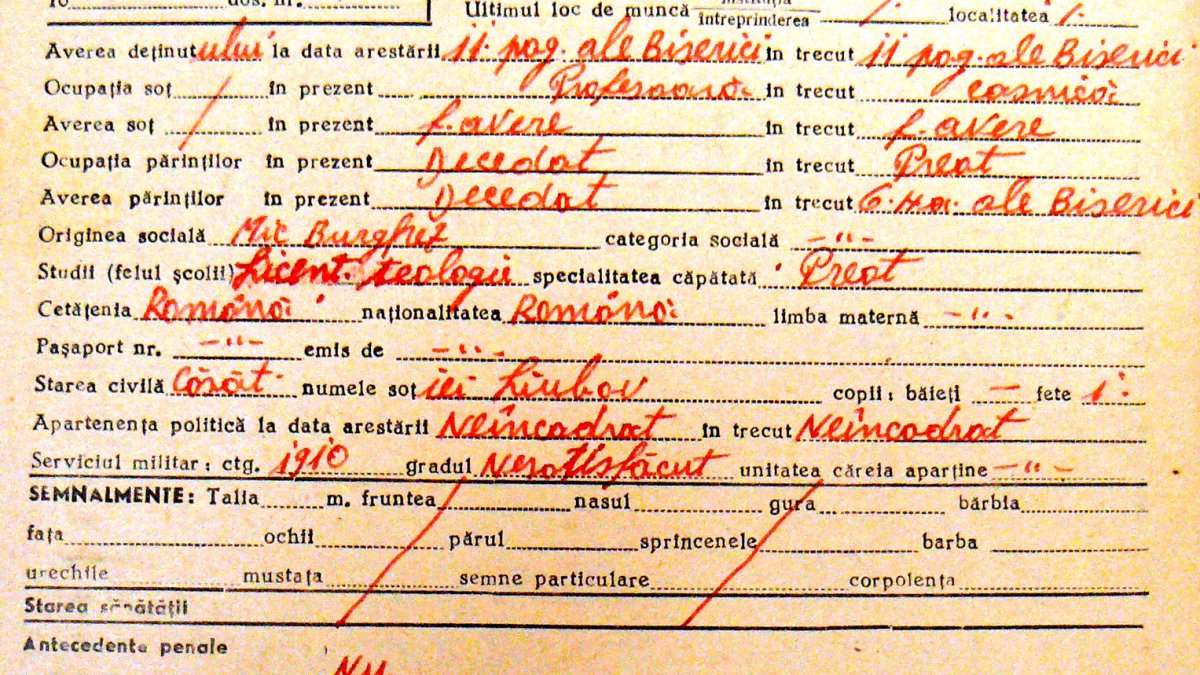 dos. nr.
Ultimul loc de muncă instituția întreprinderea / localitatea /.
Averea deținutului la data arestării 11. pog. ale Biserici în trecut 11 pog. ale Biserici
Ocupația soț / în prezent Profesoară în trecut casnică
Averea soț în prezent f. avere în trecut f. avere
Ocupația părinților în prezent Decedat în trecut Preot
Averea părinților în prezent Decedat în trecut 6. Ha. ale Biserici
Originea socială Mic Burghez categoria socială -"-
Studii (felul școlii) Licent. teologie specialitatea căpătată Preot
Cetățenia Română naționalitatea Română limba maternă -"-
Pașaport nr. -"- emis de -"-
Starea civilă Căsăt. numele soț iei Liubov copii: băieți – fete 1.
Apartenența politică la data arestării Neîncadrat în trecut Neîncadrat
Serviciul militar: ctg. 1910 gradul Nesatisfăcut unitatea căreia aparține -"-
SEMNALMENTE: Talia m. fruntea nasul gura bărbia
fața ochii părul sprîncenele barba
urechile mustața semne particulare corpolența
Starea sănătății
Antecedente penale
Nu